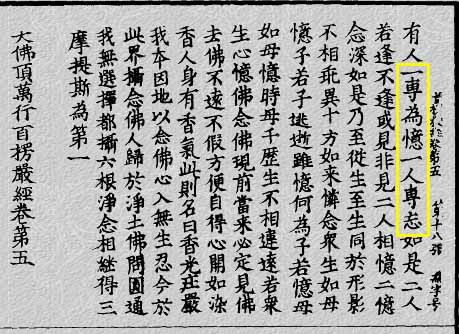 有人一專為憶一人專忘如是二人
若逢不逢或見非見二人相憶二憶
念深如是乃至從生至生同於形影
不相乖異十方如來憐念眾生如母
憶子若子逃逝雖憶何為子若憶母
如母憶時母子歷生不相違遠若眾
生心憶佛念佛現前當來必定見佛
去佛不遠不假方便自得心開如染
香人身有香氣此則名曰香光莊嚴
我本因地以念佛心入無生忍今於
此界攝念佛人歸於淨土佛問圓通
我無選擇都攝六根淨念相繼得三
摩提斯為第一
大佛頂萬行首楞嚴經卷第五